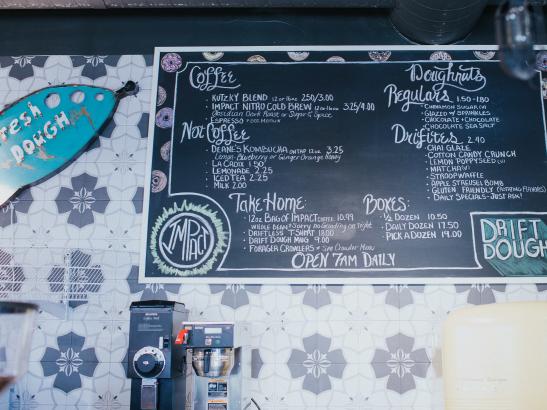 Fresh
DOUGH
Coffee
KUTZKY BLEND 12 or 16oz 2.50/3.00
IMPACT NITRO COLD BREW 12 or 16oz 3.25/4.00
Obsidian Dark Roast or Sugar & Spice
ESPRESSO
Not Coffee
DEANE'S KOMBUCHA 12oz 3.25
Lemon-Blueberry or Ginger Orange Honey
LA CROIX 1.50
LEMONADE 2.25
ICED TEA 2.25
MILK 2.00
Take Home:
12oz BAG OF IMPACT COFFEE 10.99
WHOLE BEAN Sorry No Grinding on Site
DRIFTLESS T-SHIRT 18.00
DRIFT DOUGH MUG 9.00
FORAGER GROWLERS See Crowler Menu
Boxes:
½ DOZEN 10.50
DAILY DOZEN 17.50
PICK A DOZEN 19.00
OPEN 7AM DAILY
Doughnuts
Regulars 1.50-1.80
CINNAMON SUGAR
GLAZED SPRINKLES
CHOCOLATE + CHOCOLATE
CHOCOLATE SEA SALT
Drifties 2.40
CHAI GLAZE
COTTON CANDY CRUNCH
LEMON POPPYSEED
MATCHA
STROOPWAFFLE
APPLE STREUSEL BOMB
GLUTEN FRIENDLY (ROTATING FLAVORS)
DAILY SPECIALS - JUST ASK!
IMPACT
DRIFT
DOUGH